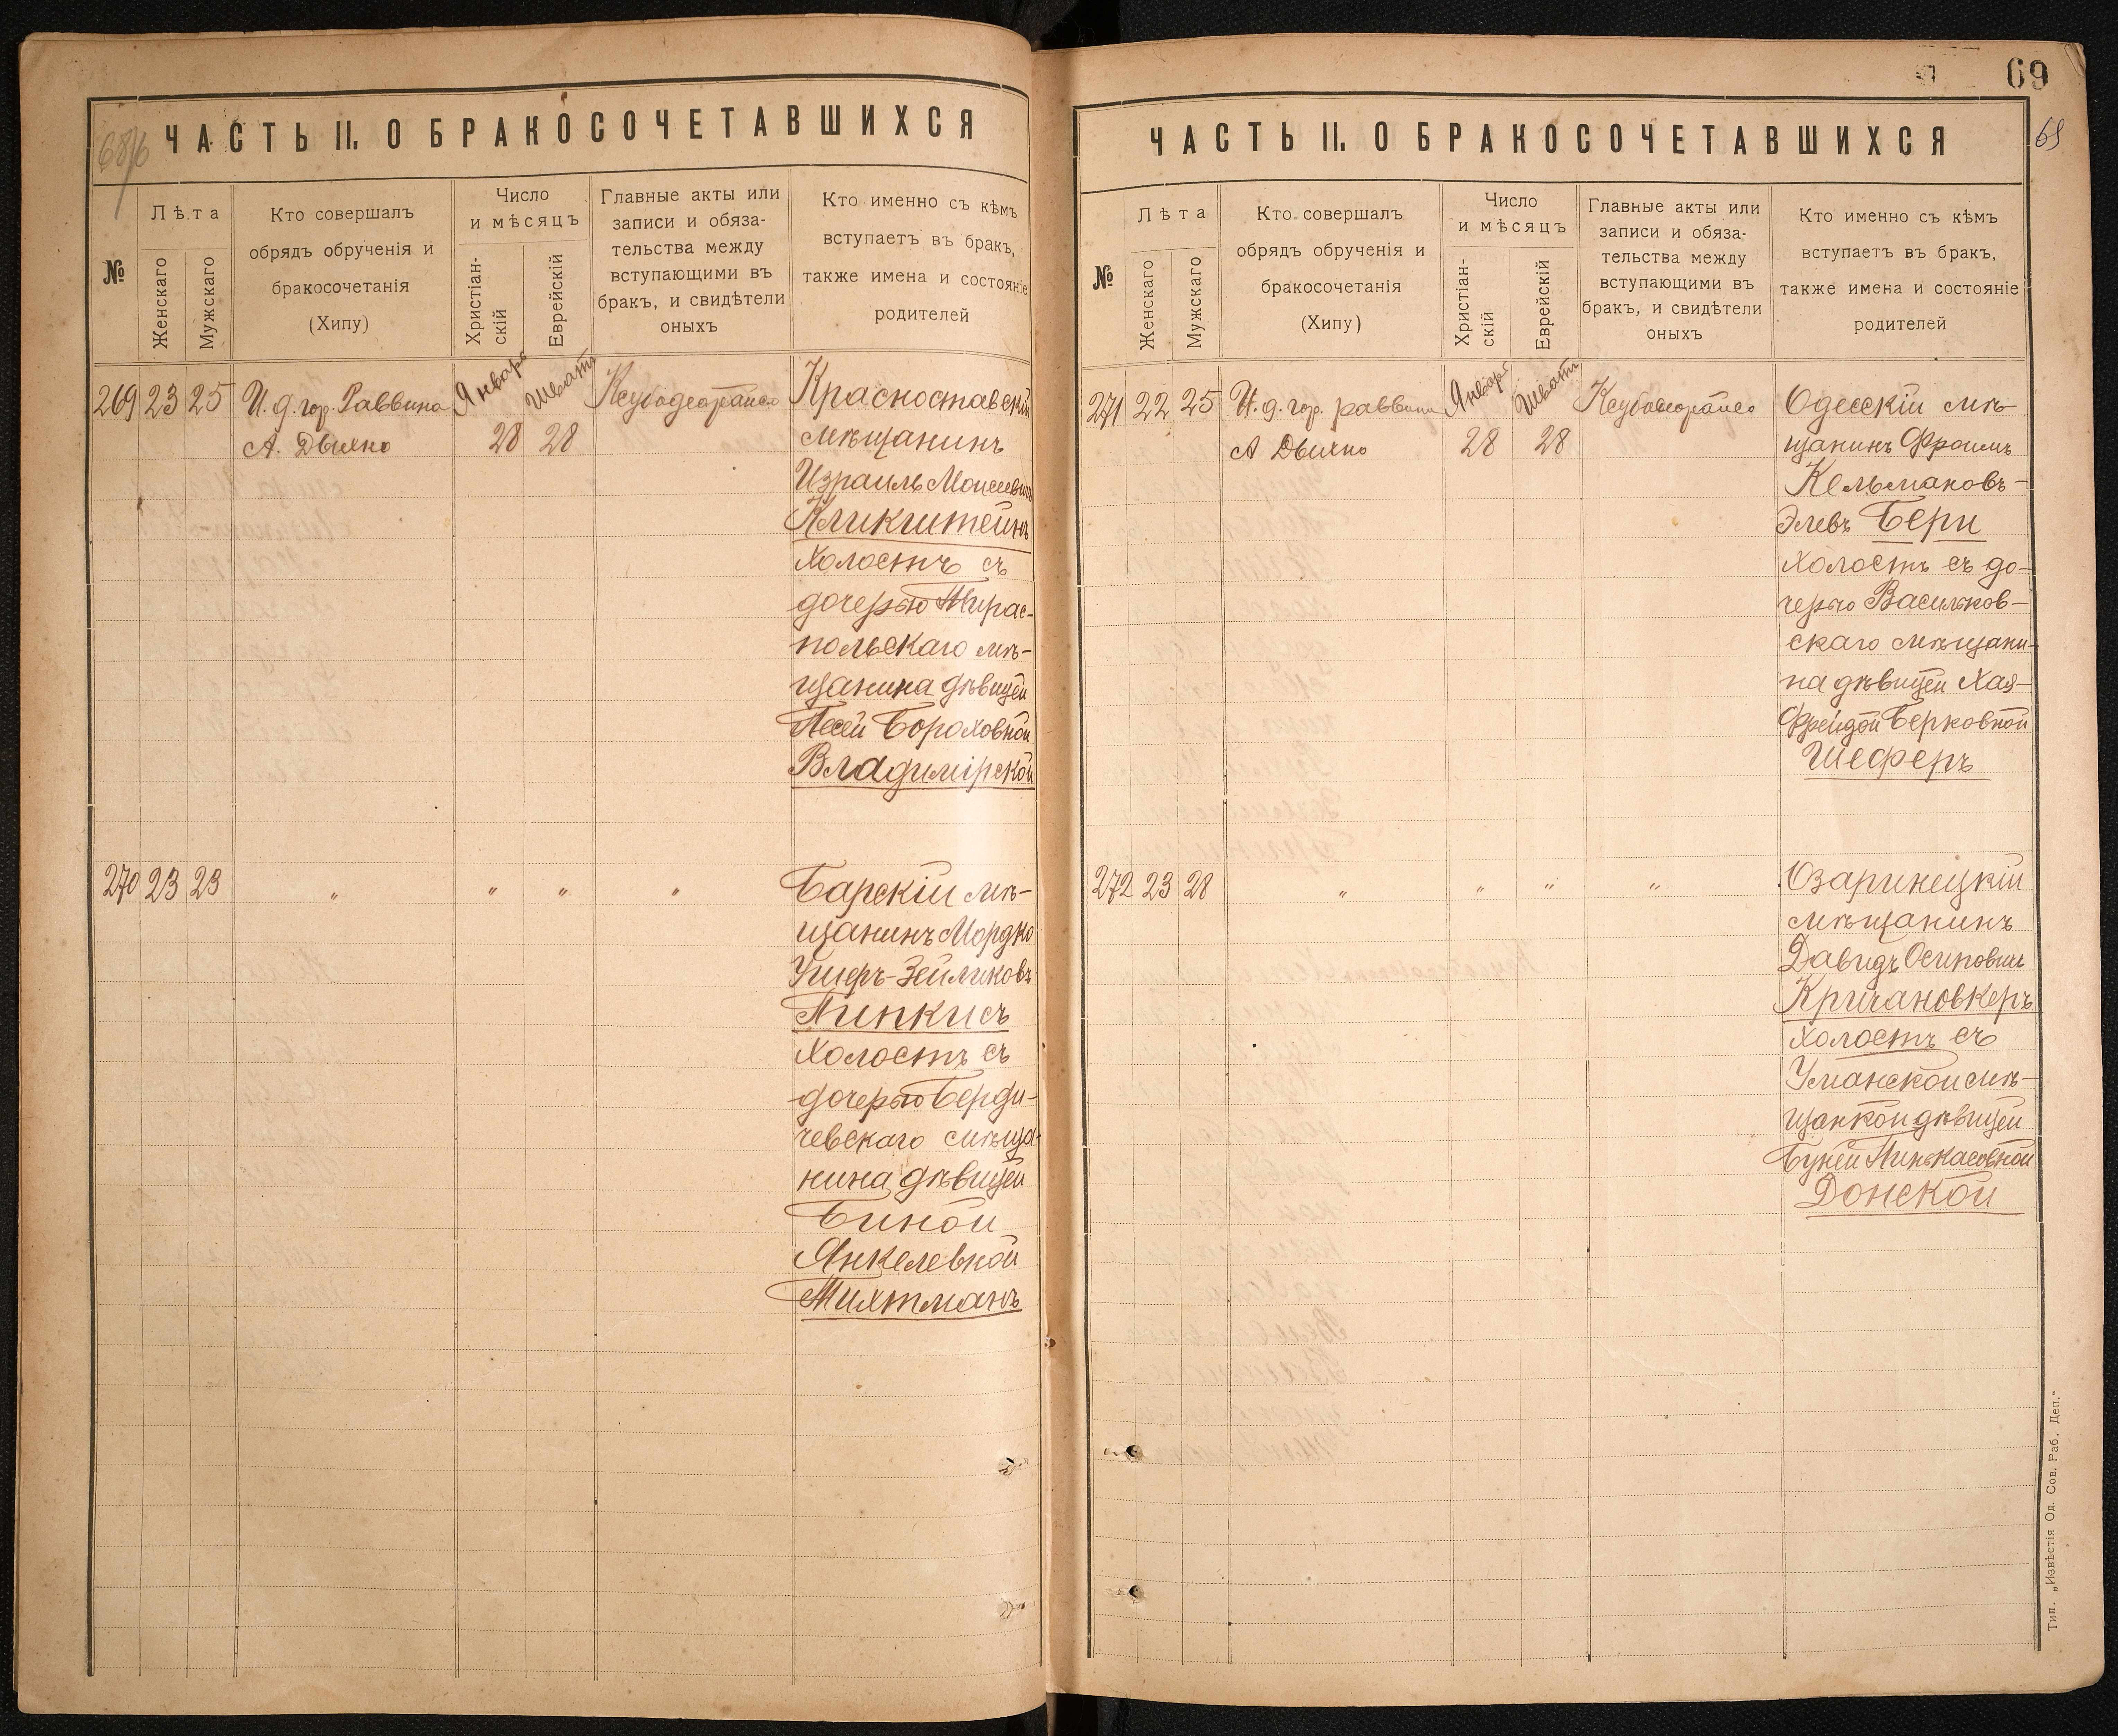 68/б
ЧАСТЬ II. О БРАКОСОЧЕТАВШИХСЯ
№
Лѣта
Женскаго
Мужскаго
Кто совершалъ
обрядъ обрученія и
бракосочетанія
(Хипу)
Число
и мѣсяцъ
Христіан-
скій
Еврейскій
Главные акты или
записи и обяза-
тельства между
вступающими въ
бракъ, и свидѣтели
оныхъ
Кто именно съ кѣмъ
вступаетъ въ бракъ,
также имена и состояніе
родителей
269 23 25 И. д. гор. Раввина Января Шватъ
А. Дыхно 28 28
Красноставскій
мѣщанинъ
Израиль Моисеевичъ
Кликштейнъ
холостъ съ
дочерью Тирас-
польскаго мѣ-
щанина дѣвицей
Песей Бороховной
Владимірской
270 23 23 " " " "
Барскій мѣ-
щанинъ Мордко
Ушеръ-Зейликовъ
Пинкисъ
холостъ съ
дочерью Берди-
чевскаго мѣща-
нина дѣвицей
Биной
Янкелевной
Тихтманъ
69
69
ЧАСТЬ II. О БРАКОСОЧЕТАВШИХСЯ
№
Лѣта
Женскаго
Мужскаго
Кто совершалъ
обрядъ обрученія и
бракосочетанія
(Хипу)
Число
и мѣсяцъ
Христіан-
скій
Еврейскій
Главные акты или
записи и обяза-
тельства между
вступающими въ
бракъ, и свидѣтели
оныхъ
Кто именно съ кѣмъ
вступаетъ въ бракъ,
также имена и состояніе
родителей
271 22 25 И. д. гор. раввина Января Шватъ
А Дыхно 28 28
Одесскій мѣ-
щанинъ Фроимъ
Кельмановъ-
Элевъ Бери
холостъ съ до-
черью Васильков-
скаго мѣщани-
на дѣвицей Хая-
Фрейдой Берковной
Шеферъ
272 23 28 " " " "
Озаринецкій
мѣщанинъ
Давидъ Осиповичъ
Кричановкеръ
холостъ съ
Уманской мѣ-
щанкой дѣвицей
Буней Пинькасовной
Донской
Тип. „Извѣстія Од. Сов. Раб. Деп."